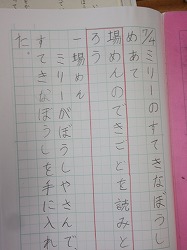 7/4 ミリーのすてきなぼうし
めあて
場めんのできごとを読みと
ろう
一場めん
ミリーがぼうしやさんで、
すてきなぼうしを手に入れ
た。